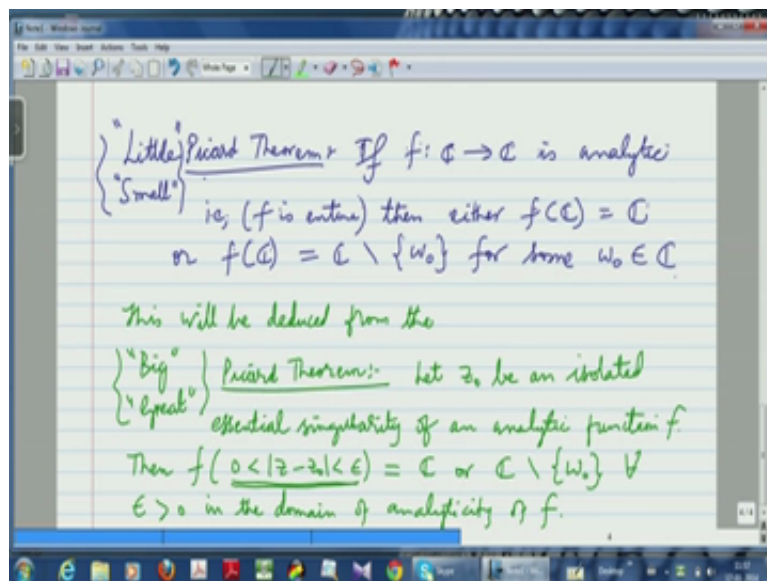 Note1 - Windows Journal
File Edit View Insert Actions Tools Help
Whole Page
"Little" Picard Theorem: If f: ℂ → ℂ is analytic
"Small"
ie, (f is entire) then either f(ℂ) = ℂ
or f(ℂ) = ℂ \ {w₀} for some w₀ ∈ ℂ
This will be deduced from the
"Big" Picard Theorem:- Let z₀ be an isolated
"Great"
essential singularity of an analytic function f.
Then f(0 < |z - z₀| < ϵ) = ℂ or ℂ \ {w₀} ∀
ϵ > 0 in the domain of analyticity of f.